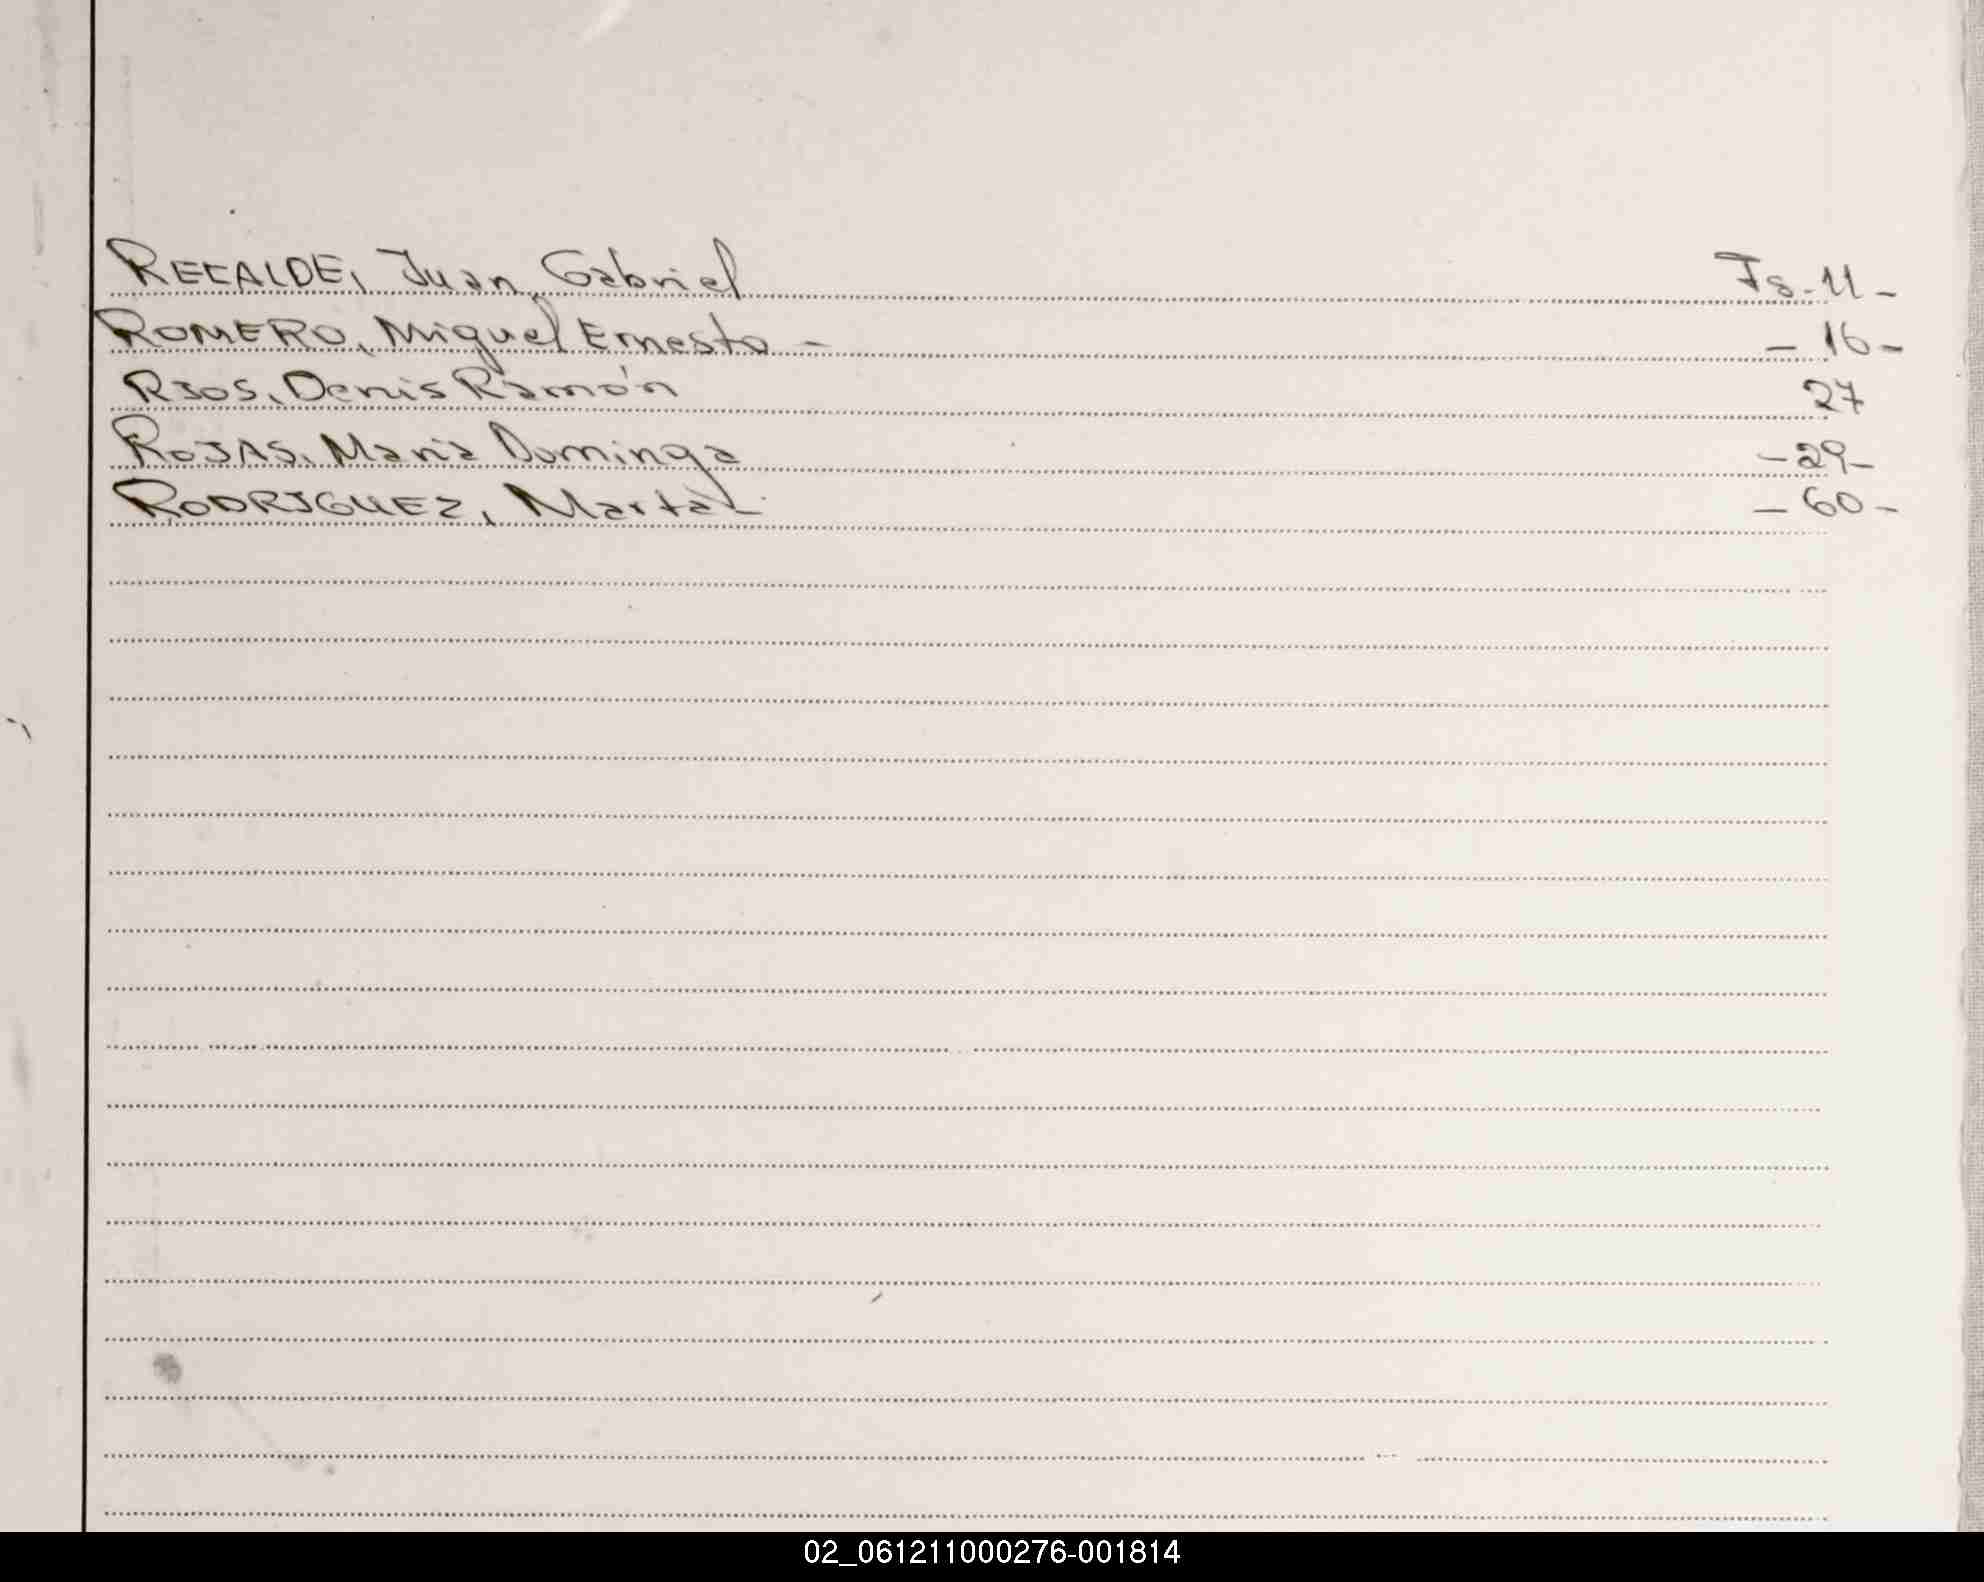 RECALDE, Juan Gabriel Fs-11-
ROMERO, Miguel Ernesto - -16-
RIOS, Denis Ramón 27
ROJAS, Maria Dominga -29-
RODRIGUEZ, Marta - -60-
02_061211000276-001814